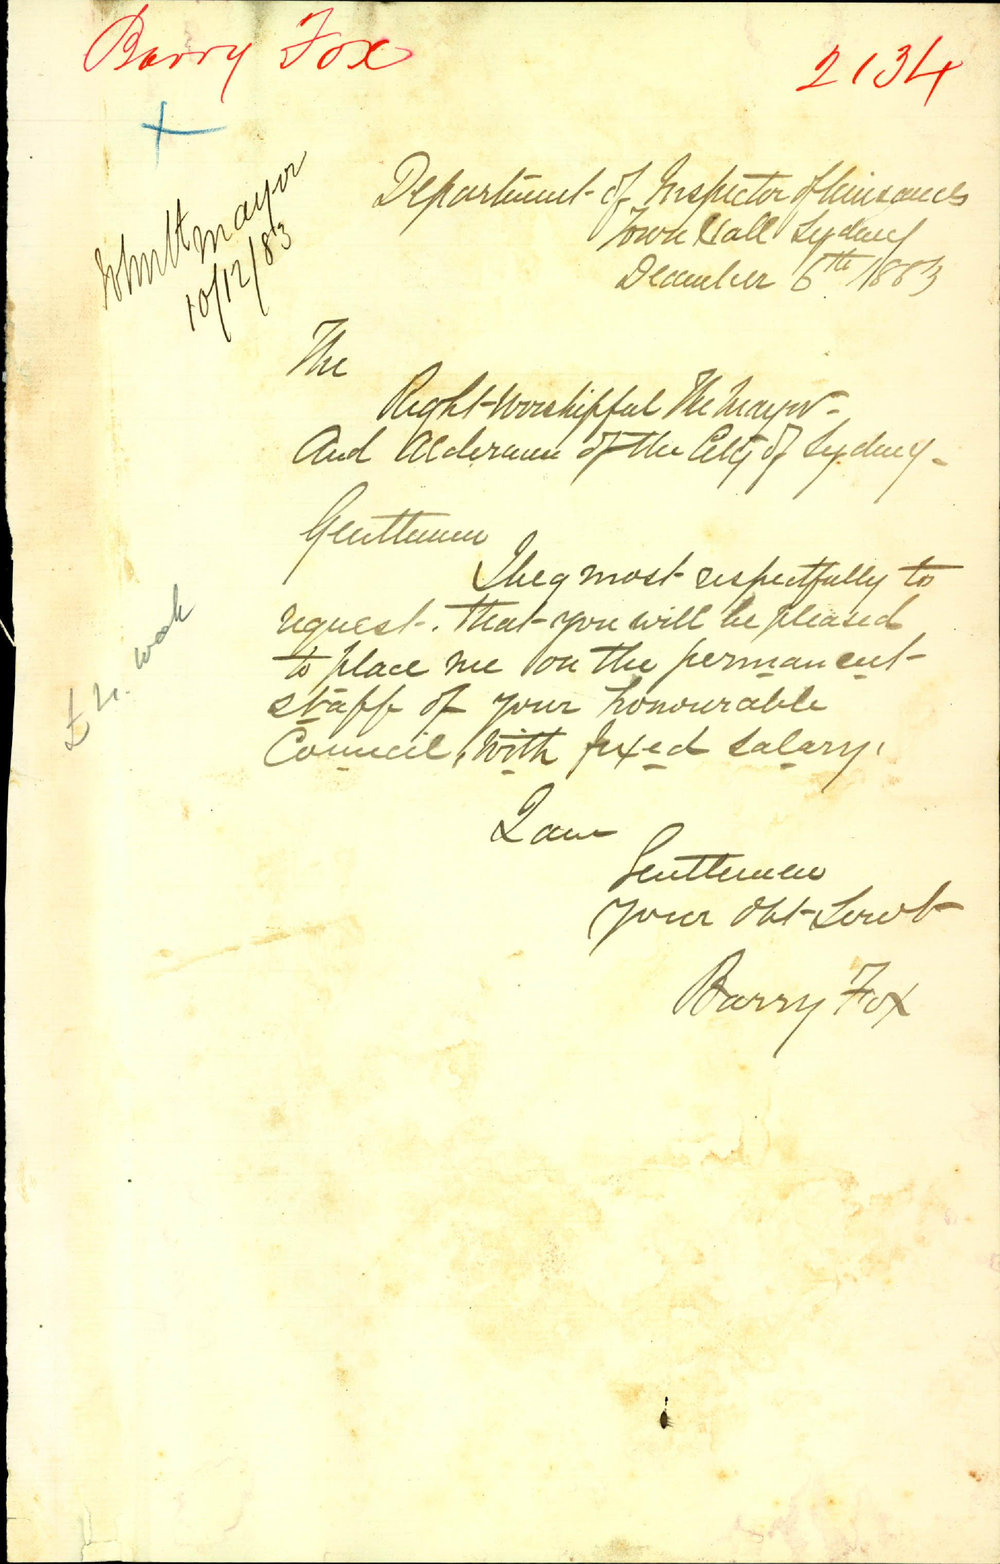 Barry Fox
2134
Mayor
10/12/83
Department of Inspector of Nuisances
Town Hall Sydney
December 6th 1883
The
Right Worshipful The Mayor
And Aldermen of the City of Sydney
Gentlemen
I beg most respectfully to
request. that you will be pleased
to place me on the permanent
staff of your honourable
Council, with fixed salary.
I am
Gentlemen
your Obt Servt
Barry Fox
week